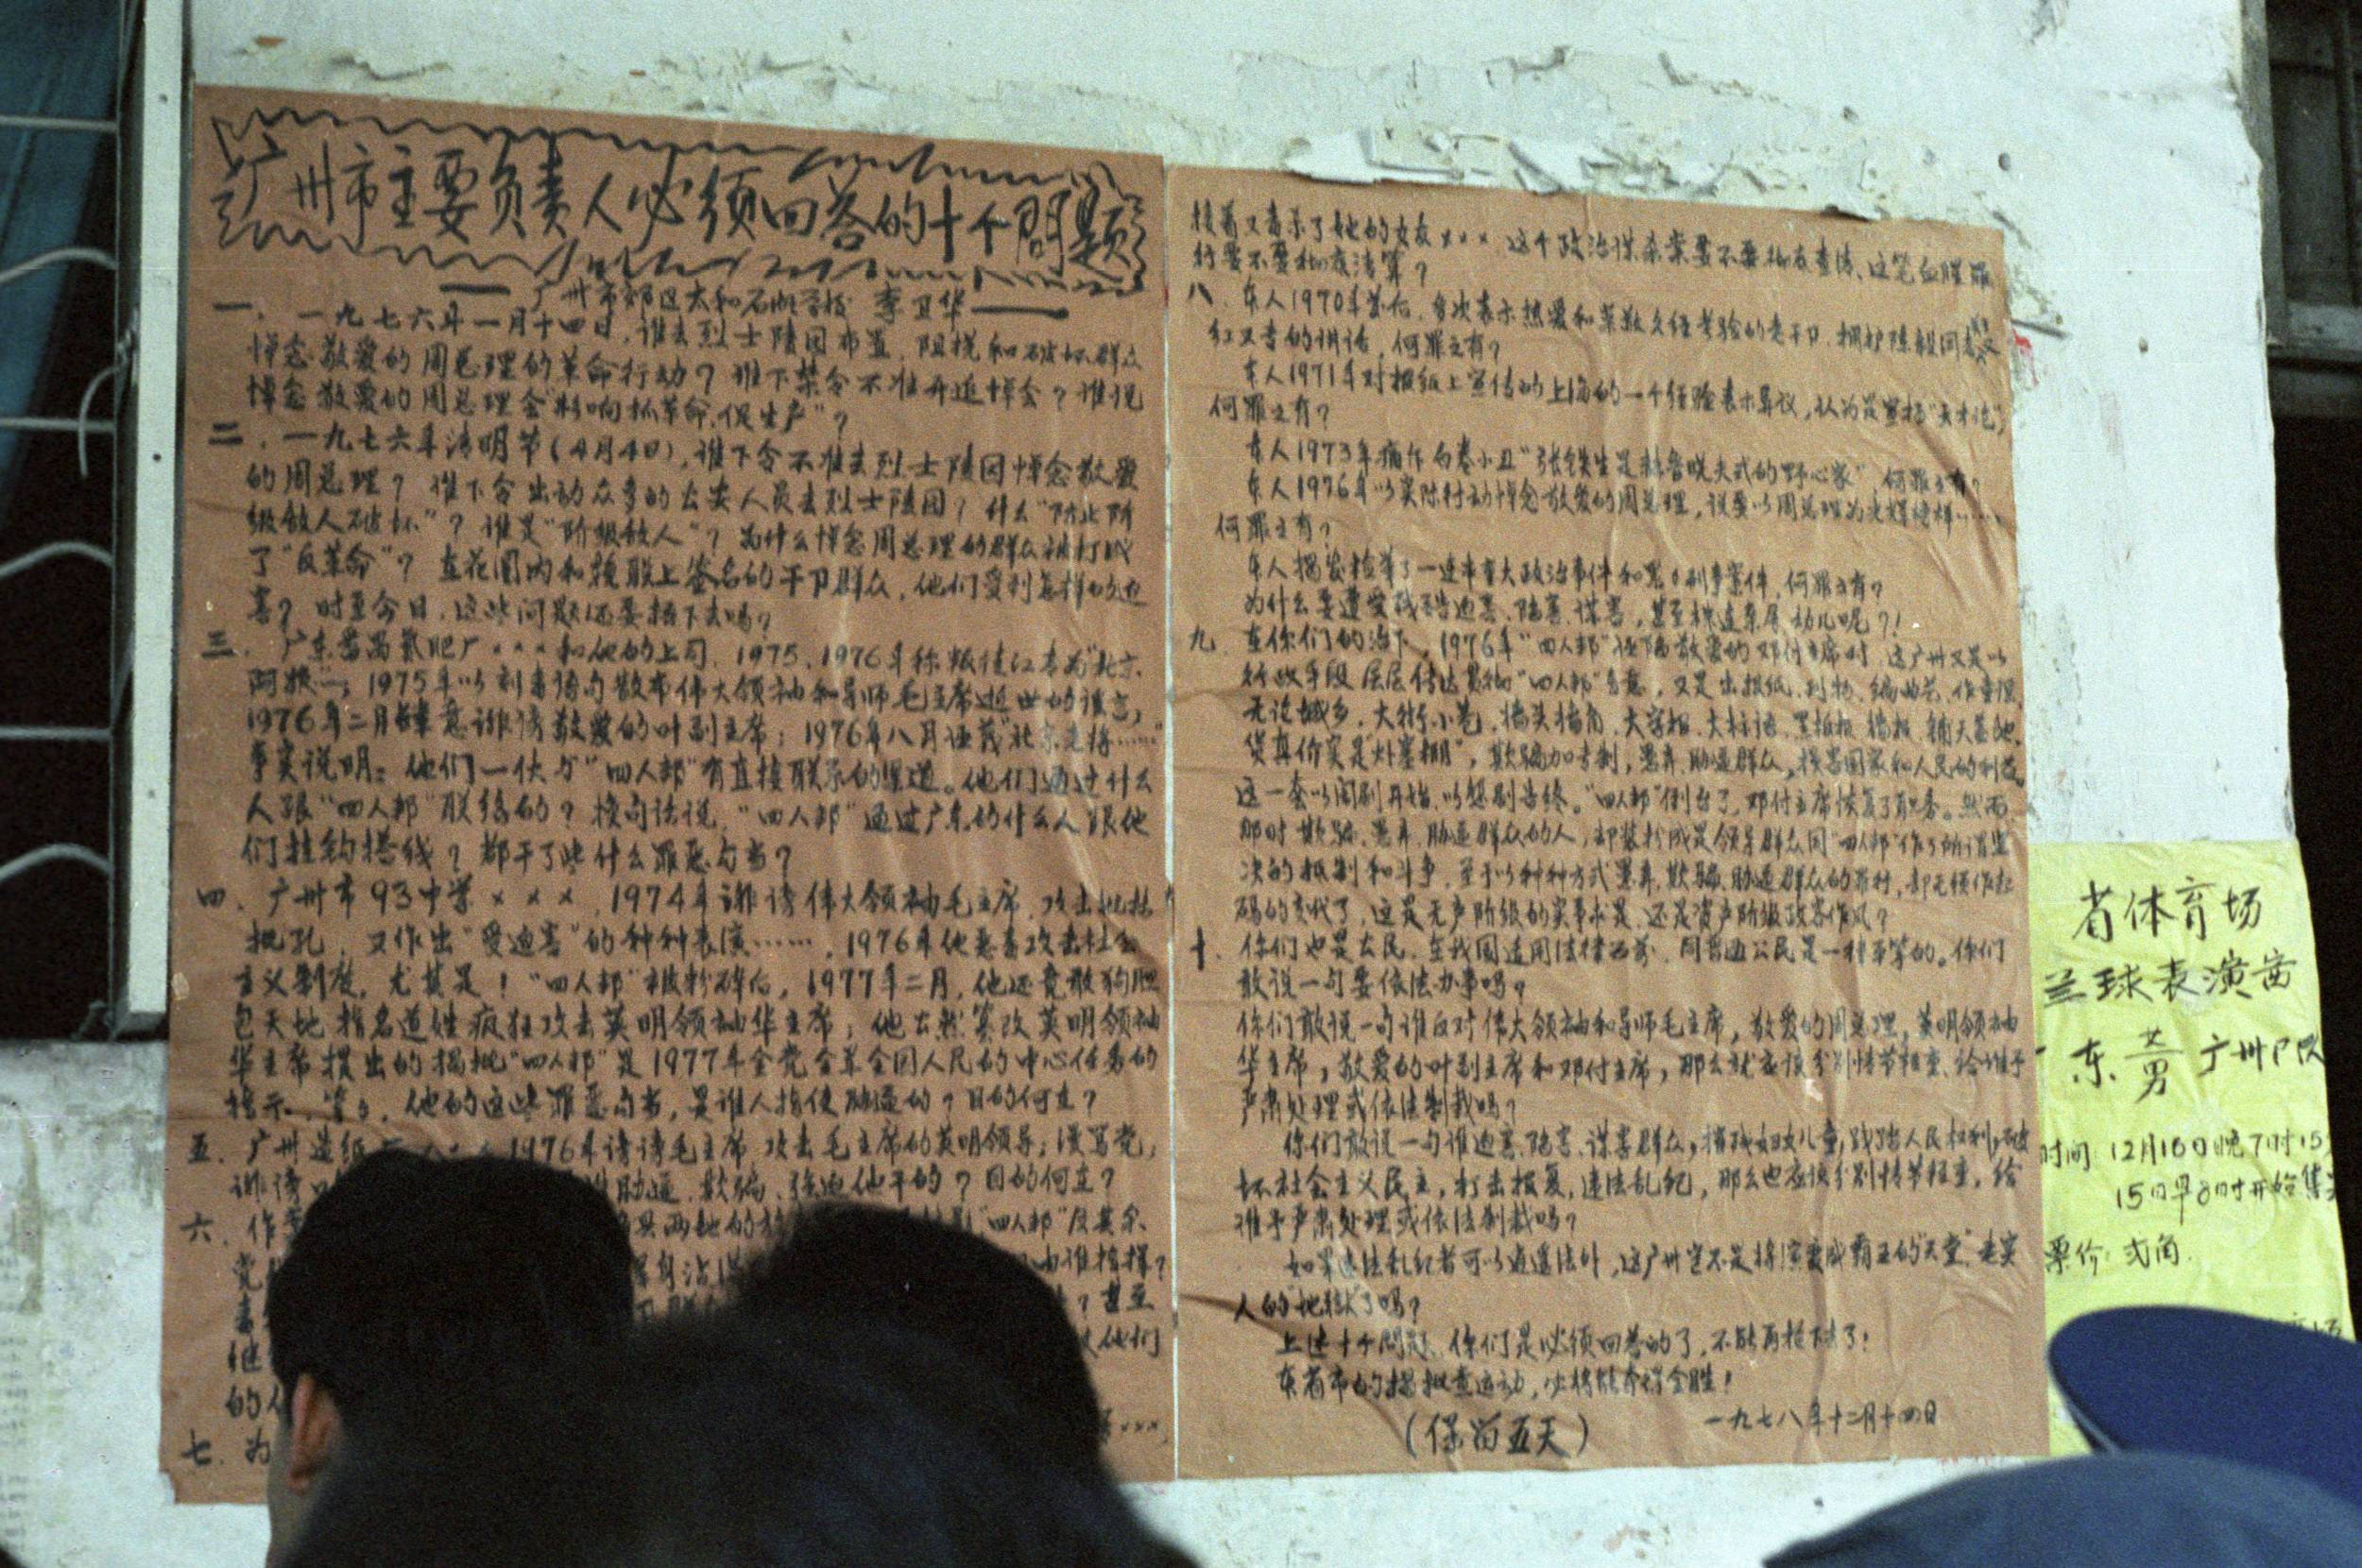 广州市主要负责人必须回答的十个問題
——广州市郊区太和石帆学校 李卫华——
一、一九七六年一月十四日，谁去烈士陵园布置、阻挠和破坏群众
悼念敬爱的周总理的革命行动？谁下禁令不准开追悼会？谁说
悼念敬爱的周总理会“影响抓革命，促生产”？
二、一九七六年清明节（4月4日），谁下令不准去烈士陵园悼念敬爱
的周总理？谁下令出动众多的公安人员去烈士陵园？什么“防止阶
级敌人破坏”？谁是“阶级敌人”？为什么悼念周总理的群众被打成
了“反革命”？在花圈内和挽联上签名的干卩群众，他们受到怎样的迫
害？时至今日，这些问题还要捂下去吗？
三、广东番禺氮肥厂×××和他的上司，1975、1976年称叛徒江青为“北京
阿娘”；1975年以刻毒语句散布伟大领袖和导师毛主席逝世的谣言；
1976年二月肆意诽谤敬爱的叶副主席；1976年八月诬蔑“北京老将……”
事实说明：他们一伙与“四人邦”有直接联系的渠道。他们通过什么
人跟“四人邦”联络的？换句话说，“四人邦”通过广东的什么人跟他
们挂钩搭线？都干了些什么罪恶勾当？
四、广州市93中学×××，1974年诽谤伟大领袖毛主席，攻击批林
批孔，又作出“受迫害”的种种表演……，1976年他恶毒攻击社会
主义制度，尤其是！“四人邦”被粉碎后，1977年二月，他还竟敢狗胆
包天地指名道姓疯狂攻击英明领袖华主席；他公然篡改英明领袖
华主席提出的揭批“四人邦”是1977年全党全军全国人民的中心任务的
指示，等等，他的这些罪恶勾当，是谁人指使胁逼的？目的何在？
五、广州造纸 1976年诽谤毛主席，攻击毛主席的英明领导；漫骂党，
诽谤 胁逼、欺骗、强迫他干的？目的何在？
六、作 “四人邦”及其余
党 由谁指挥？
？甚至
继 他们
的
七、为 ×××，
接着又毒杀了她的女友×××，这个政治谋杀案要不要彻夜查清、这笔血腥罪
行要不要彻夜清算？
八、本人1970年前后，多次表示热爱和崇敬久经考验的老干卩，拥护陈毅同志又
红又专的讲话，何罪之有？
本人1971年对报纸上宣传的上海的一个经验表示异议，认为是宣扬“天才论”，
何罪之有？
本人1973年痛斥白卷小丑“张铁生是赫鲁晓夫式的野心家”，何罪之有？
本人1976年以实际行动悼念敬爱的周总理，说要以周总理为光辉榜样……
何罪之有？
本人揭发检举了一连串重大政治事件和 刑事案件，何罪之有？
为什么要遭受残酷迫害、陷害、谋害，甚至株连亲属幼儿呢？！
九、在你们的治下，1976年“四人邦”诬陷敬爱的邓付主席时，这广州又是以
行政手段层层传达贯彻“四人邦”旨意，又是出报纸、刊物、编曲艺、作书
无论城乡、大街小巷、墙头墙角，大字报、大标语、黑板报、墙报，铺天盖地，
货真价实是“ ”，欺骗加专制，愚弄、胁逼群众，损害国家和人民的利益。
这一套以闹剧开始，以悲剧告终。“四人邦”倒台了，邓付主席恢复了职务。然而
那时欺骗、愚弄、胁逼群众的人，却装扮成是领导群众同“四人邦”作了所谓坚
决的抵制和斗争，至于以种种方式愚弄、欺骗、胁逼群众的罪行，却无须作起
码的交代了，这是无产阶级的实事求是，还是资产阶级政客作风？
十、你们也是公民，在我国适用法律面前，同普通公民是一种平等的。你们
敢说一句要依法办事吗？
你们敢说一句谁反对伟大领袖和导师毛主席，敬爱的周总理，英明领袖
华主席，敬爱的叶副主席和邓付主席，那么就应该分别情节轻重，给谁予
严肃处理或依法制裁吗？
你们敢说一句谁迫害、陷害、谋害群众，摧残妇女儿童，践踏人民权利，破
坏社会主义民主，打击报复，违法乱纪，那么也应该分别情节轻重，给
谁予严肃处理或依法制裁吗？
如果违法乱纪者可以逍遥法外，这广州岂不是将演变成霸王的“天堂”，老实
人的“地狱”了吗？
上述十个問題，你们是必须回答的了，不能再拖下去了！
东省市的揭批查运动，必将能夺得全胜！
（保留五天）
一九七八年十二月十四日
省体育场
兰球表演赛
广东黄男 广州卩队
时间：12月16日晚7时15
15日早8时开始售
票价：弍角.